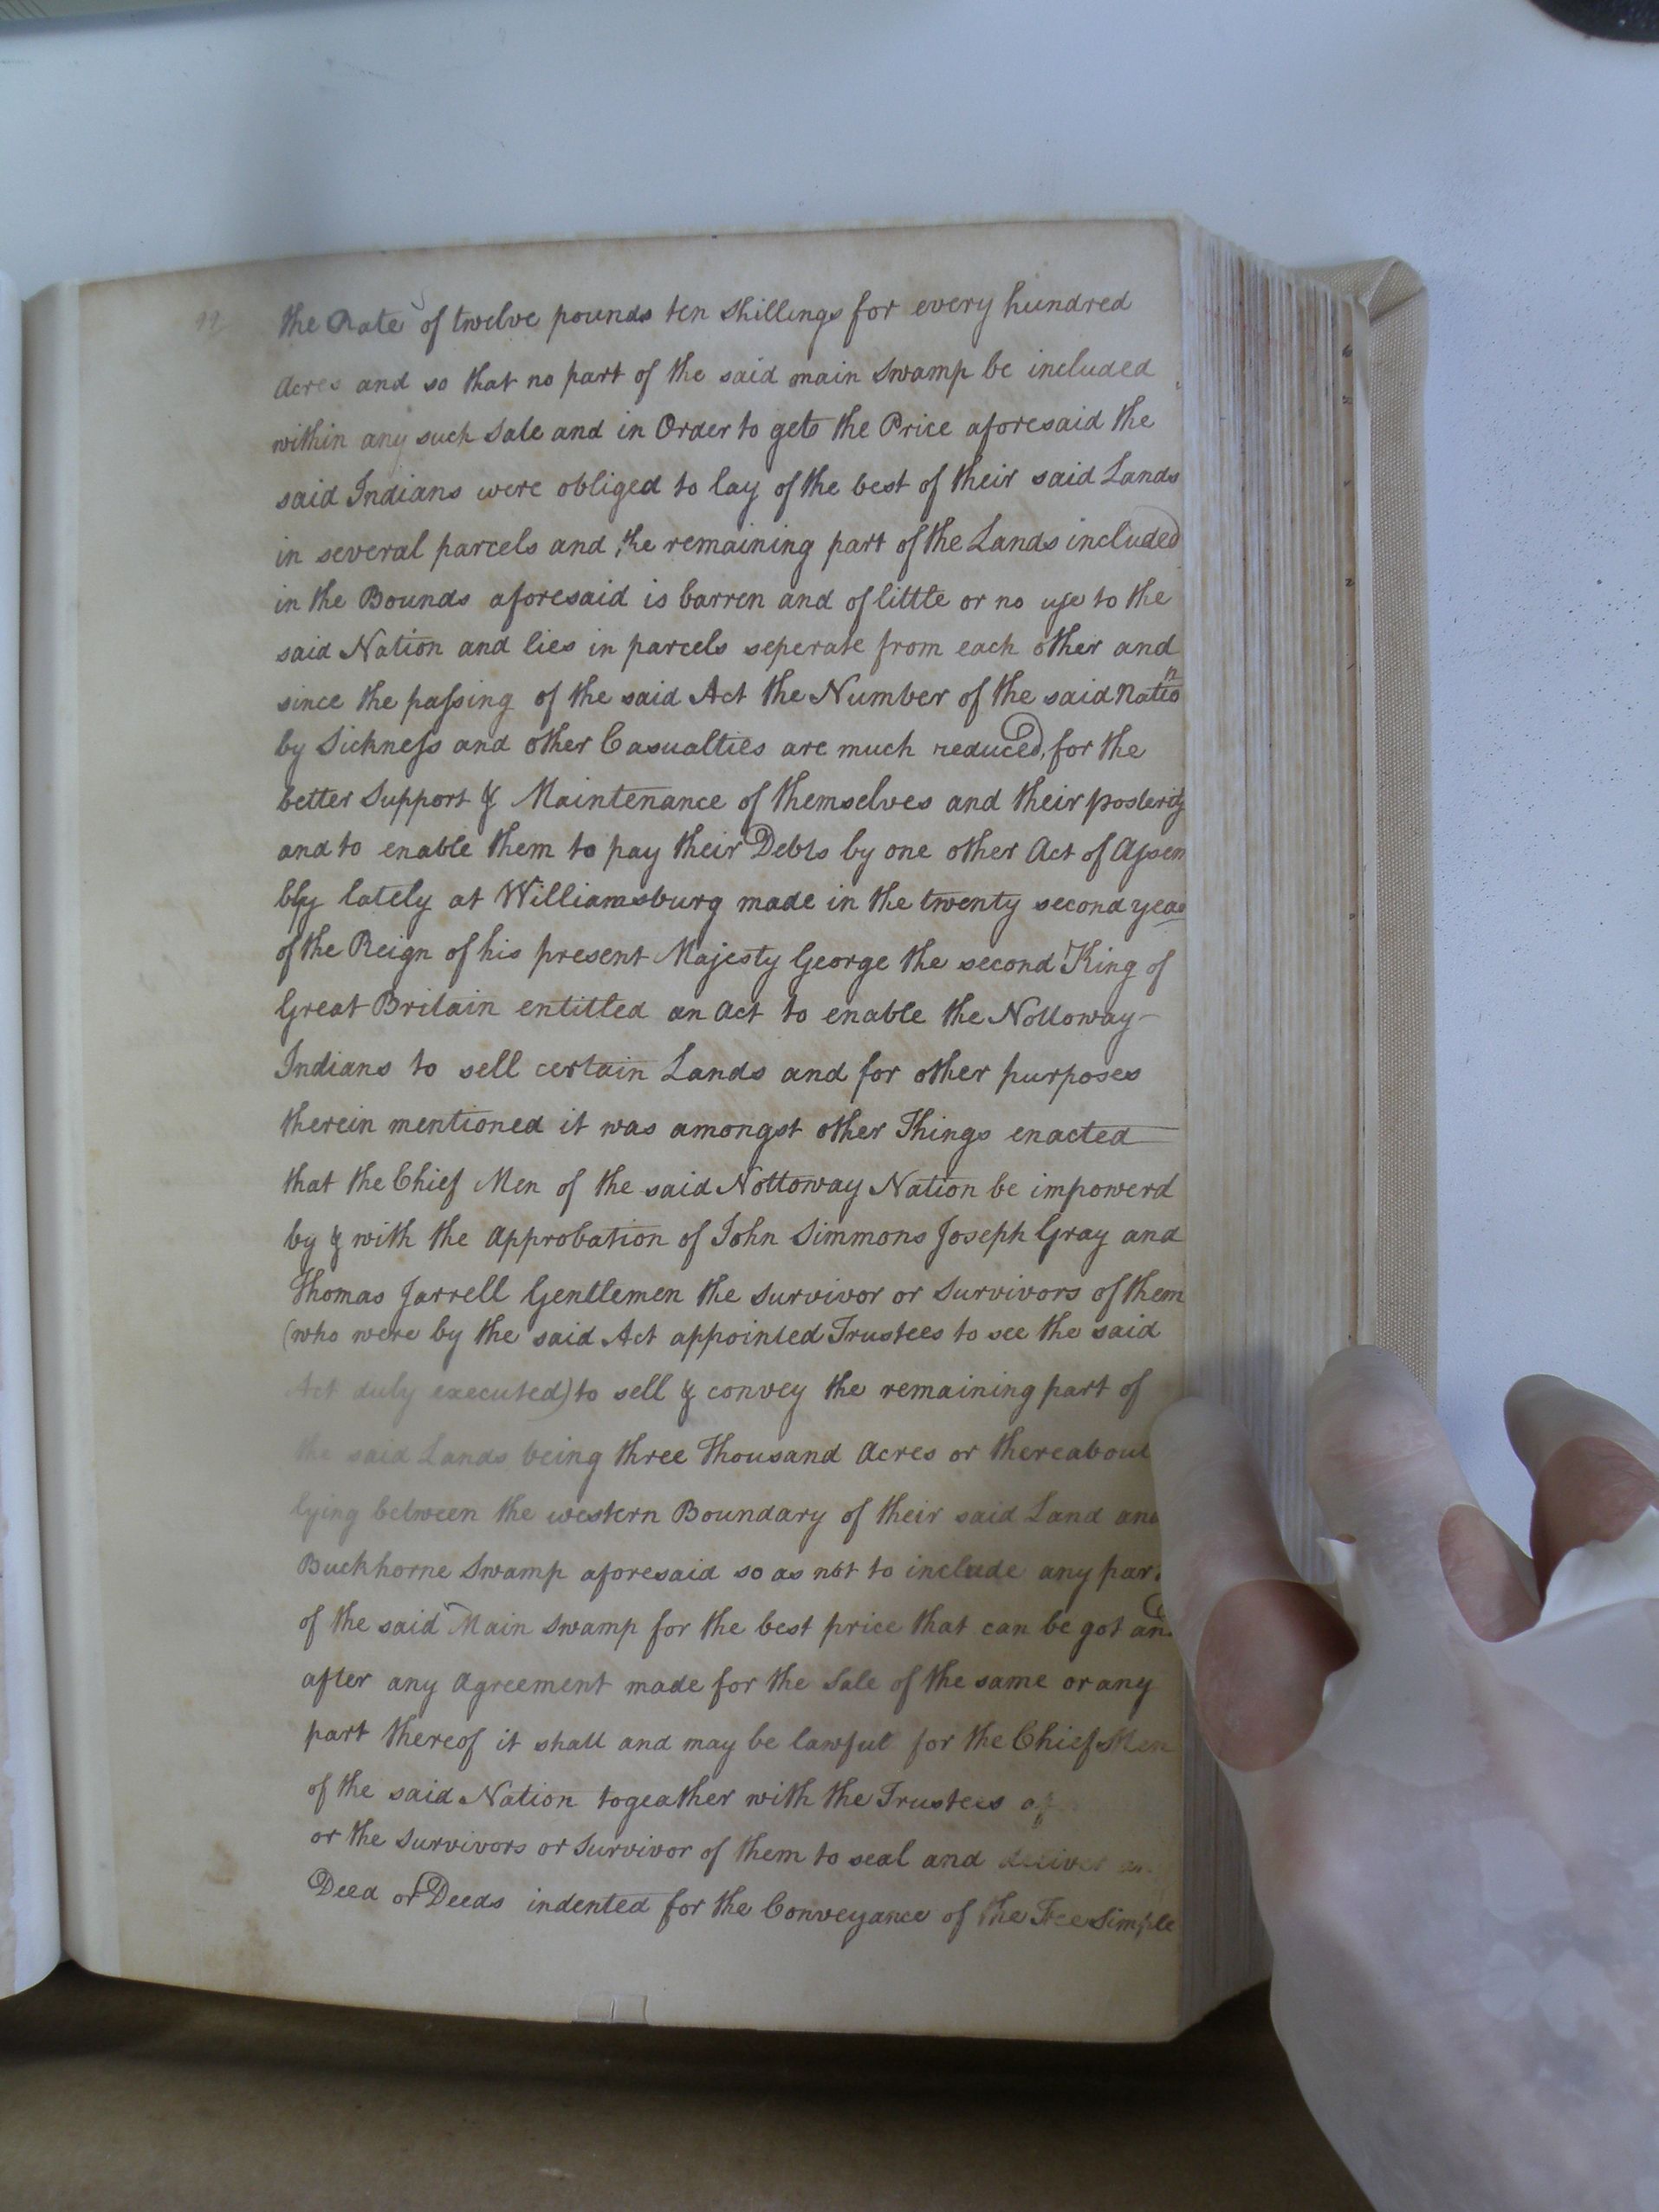 12
the Rate of twelve pounds ten shillings for every hundred
Acres and so that no part of the said main swamp be included
within any such Sale and in Order to gett the Price aforesaid the
said Indians were obliged to lay of the best of their said Lands
in several parcels and the remaining part of the Lands included
in the Bounds aforesaid is barren and of little or no use to the
said Nation and lies in parcels seperate from each other and
since the passing of the said Act the Number of the said Natio n
by Sickness and other Casualties are much reduced, for the
better Support & Maintenance of themselves and their posterity
and to enable them to pay their Debts by one other Act of Assem
bly lately at Williamsburg made in the twenty second year
of the Reign of his present Majesty George the second King of
Great Britain entitled an Act to enable the Nottoway
Indians to sell certain Lands and for other purposes
therein mentioned it was amongst other Things enacted
that the Chief Men of the said Nottoway Nation be impowerd
by & with the Approbation of John Simmons Joseph Gray and
Thomas Jarrell Gentlemen the Survivor or Survivors of them
(who were by the said Act appointed Trustees to see the said
Act duly executed) to sell & convey the remaining part of
the said Lands being three Thousand Acres or thereabout
lying between the western Boundary of their said Land and
Buckhorne Swamp aforesaid so as not to include any par
of the said Main Swamp for the best price that can be got an
after any Agreement made for the Sale of the same or any
part thereof it shall and may be lawful for the Chief Men
of the said Nation togeather with the Trustees
or the Survivors or Survivor of them to seal and deliver
Deed or Deeds indented for the Conveyance of the Fee Simple